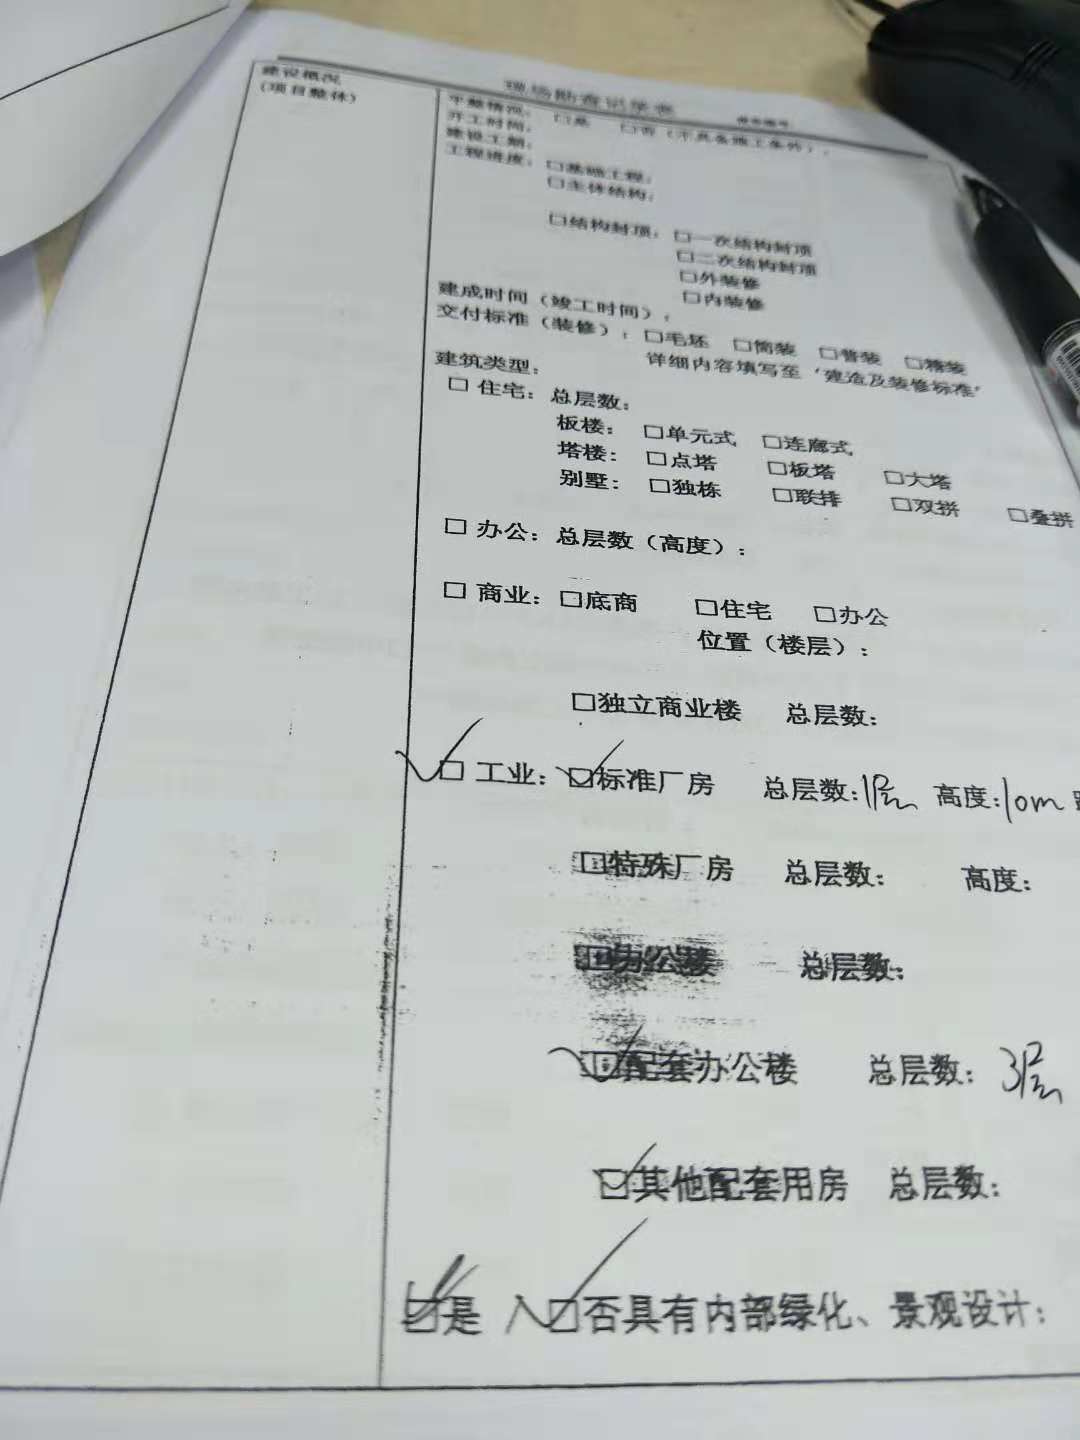 现场勘查记录表
建设概况
(项目整体)
平整情况: □是 □否(不具备施工条件);
开工时间:
建设工期:
工程进度: □基础工程:
□主体结构:
□结构封顶: □一次结构封顶
□二次结构封顶
□外装修
□内装修
建成时间(竣工时间):
交付标准(装修): □毛坯 □简装 □普装 □精装
详细内容填写至‘建造及装修标准’
建筑类型:
□ 住宅: 总层数:
板楼: □单元式 □连廊式
塔楼: □点塔 □板塔 □大塔
别墅: □独栋 □联排 □双拼 □叠拼
□ 办公: 总层数(高度):
□ 商业: □底商 □住宅 □办公
位置(楼层):
□独立商业楼 总层数:
☑ 工业: ☑标准厂房 总层数:1层 高度:10m
□特殊厂房 总层数: 高度:
□办公楼 总层数:
☑配套办公楼 总层数: 3层
☑其他配套用房 总层数:
☑是 ☑否具有内部绿化、景观设计: